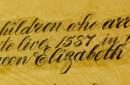 children who are
to live, 1557 in
een Elizabeth